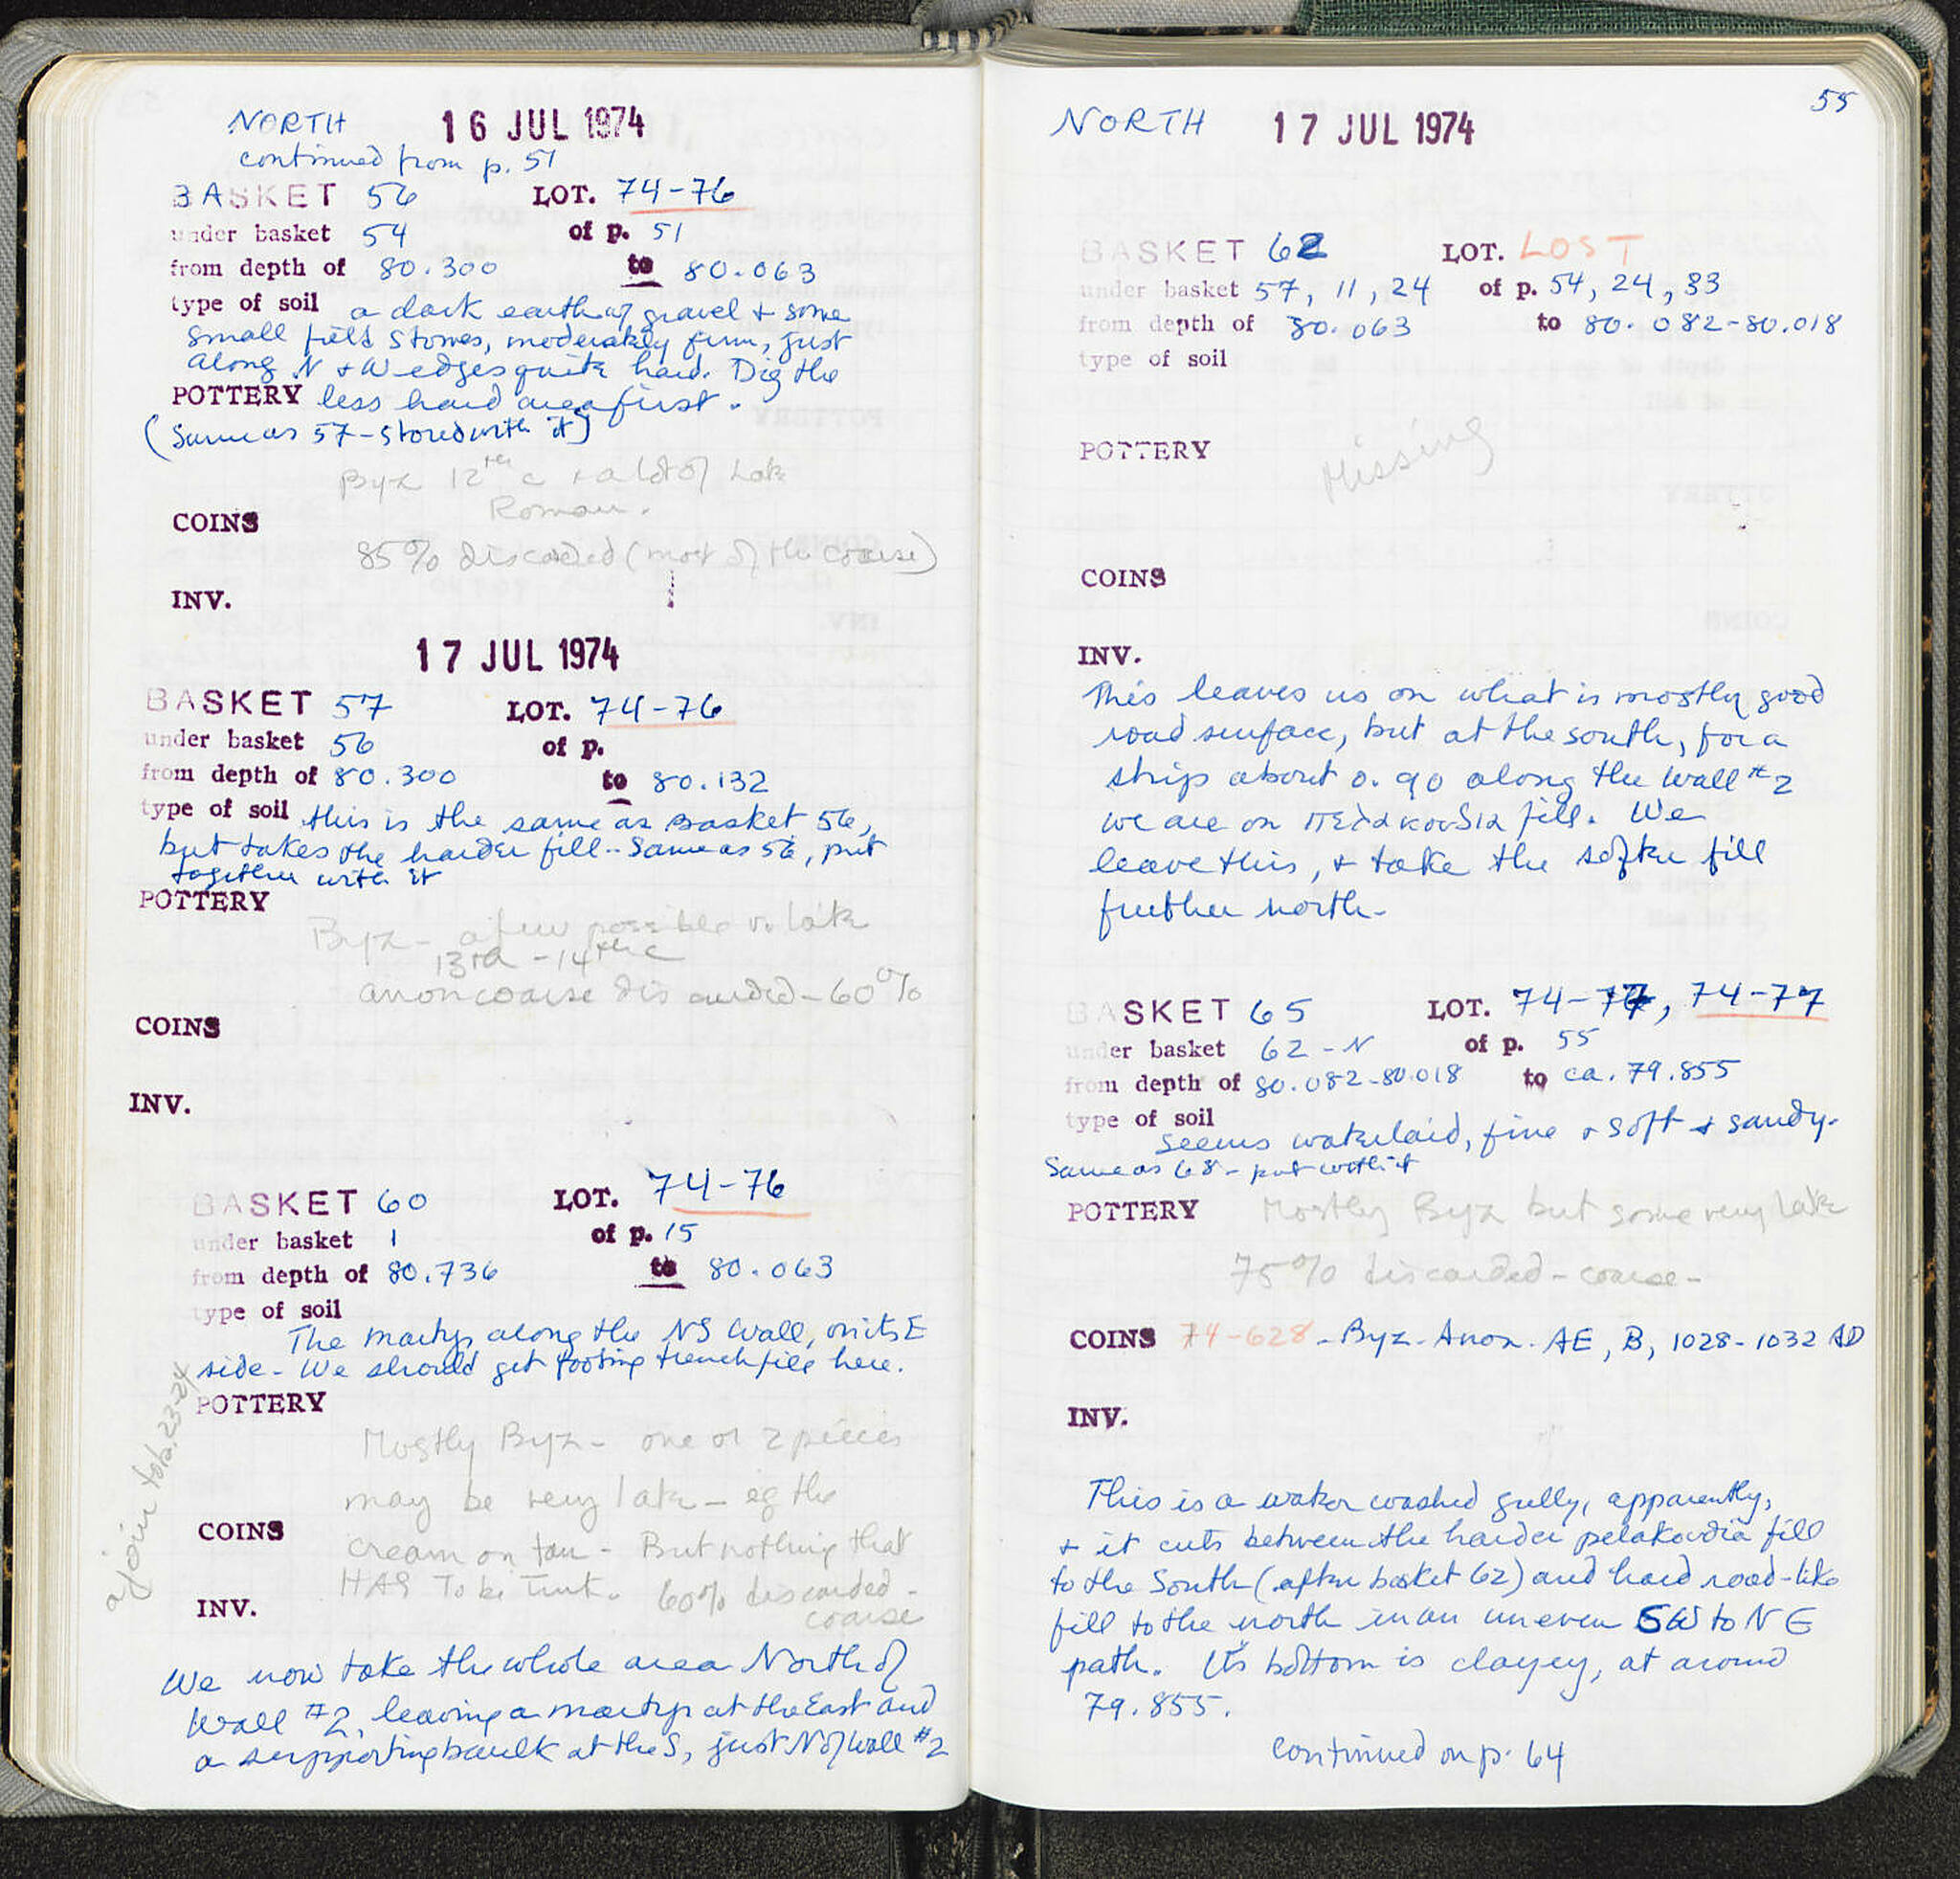 NORTH 16 JUL 1974
continued from p. 51
BASKET 56 LOT. 74-76
under basket 54 of p. 51
from depth of 80.300 to 80.063
type of soil a dark earth of gravel + some
small field stones, moderately firm, just
along N + W edges quite hard. Dig the
POTTERY less hard area first.
(Same as 57 - stored with it)
Byz 12th c + a lot of Late
Roman.
COINS
85% discarded (most of the coarse)
INV.
17 JUL 1974
BASKET 57 LOT. 74-76
under basket 56 of p.
from depth of 80.300 to 80.132
type of soil this is the same as Basket 56,
but takes the harder fill - Same as 56, put
together with it
POTTERY
Byz - a few possible v. late
13th - 14th c
discarded - 60%
COINS
INV.
BASKET 60 LOT. 74-76
under basket 1 of p. 15
from depth of 80.736 to 80.063
type of soil
The martyr along the NS Wall, on its E
side - We should get footing trench fill here.
POTTERY
Mostly Byz - one or 2 pieces
may be very late - eg the
COINS
cream on tan - But nothing that
HAS To be Turk. 60% discarded -
coarse
INV.
a join to b. 23-24
We now take the whole area North of
Wall #2, leaving a martyr at the East and
a supporting baulk at the S, just N of Wall #2
55
NORTH 17 JUL 1974
BASKET 62 LOT. LOST
under basket 57, 11, 24 of p. 54, 24, 33
from depth of 80.063 to 80.082-80.018
type of soil
POTTERY Missing
COINS
INV.
This leaves us on what is mostly good
road surface, but at the south, for a
strip about 0.90 along the Wall #2
we are on πελακούδια fill. We
leave this, + take the softer fill
further north.
BASKET 65 LOT. 74-77, 74-77
under basket 62-N of p. 55
from depth of 80.082-80.018 to ca. 79.855
type of soil
seems waterlaid, fine + soft + sandy.
Same as 68 - put with it
POTTERY Mostly Byz but some very late
75% discarded - coarse -
COINS 74-628 - Byz. Anon. AE, B, 1028-1032 AD
INV.
This is a water washed gully, apparently,
+ it cuts between the harder pelakoudia fill
to the South (after basket 62) and hard road-like
fill to the north in an uneven SW to NE
path. Its bottom is clayey, at around
79.855.
continued on p. 64